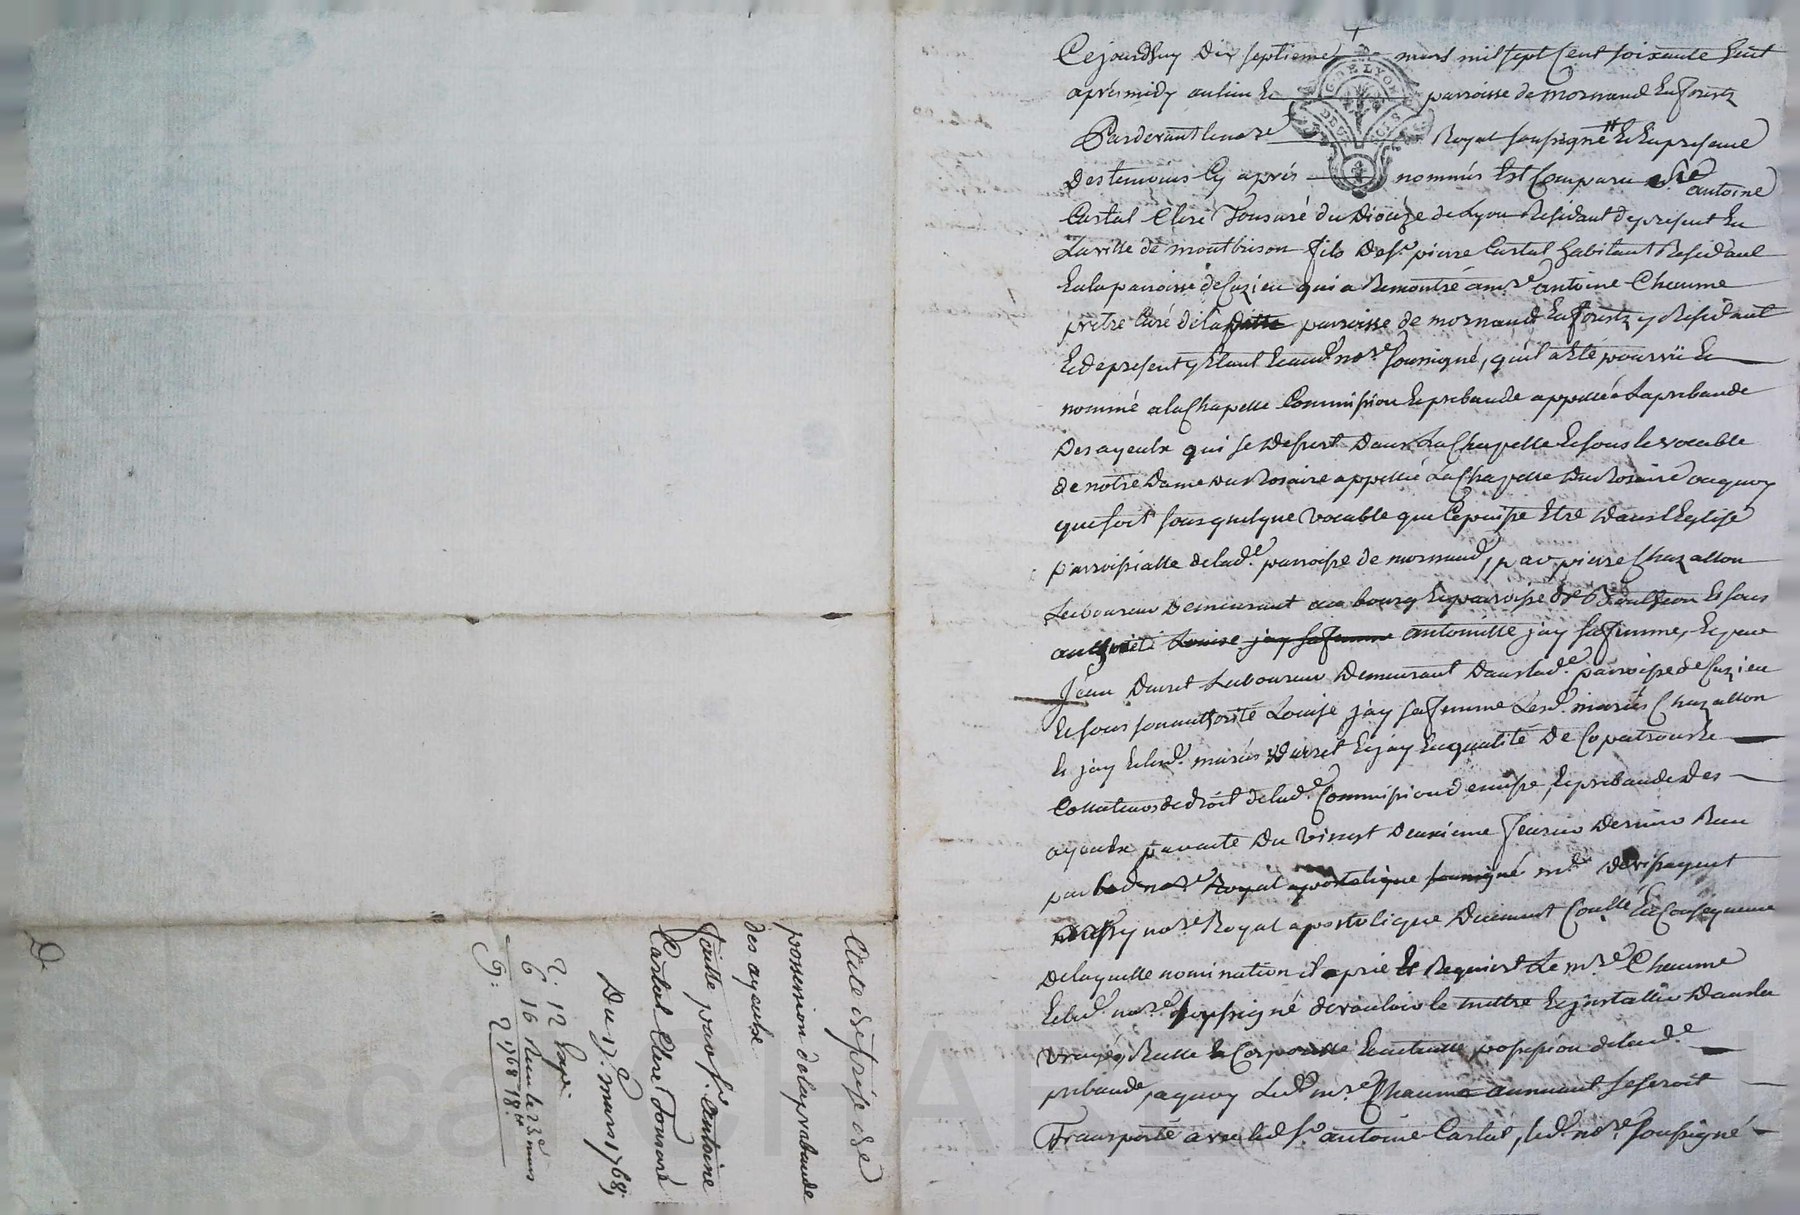 Cejourdhuy dix septieme mars mil sept Cent soixante huit
aprés midy au lieu et parroisse de mornand En forêtz
Pardevant le no.re Royal soussigné Et En presence
Des temoins Cy aprés nommés Est Comparu s.r antoine
Cartal Clerc Tonsuré du Diocéze de Lyon Residant de present En
La ville de montbrison fils de s.r pierre Cartal habitant Residant
En la parroisse de Cuzieu qui a Remontré a m.re antoine Chaume
prêtre Curé de la parroisse de mornand En forêtz y Residant
Et de present y Etant Et aud. no.re soussigné, qu'il a Eté pourvü Et
nommé a la Chapelle Commission Et prebande appellée La prebande
Des ayeulx qui se Desert Dans La Chapelle Et sous le vocable
de notre Dame du Rosaire appellée La Chapelle Du Rosaire ou quoy
que soit sous quelque vocable que Ce puisse Etre Dans l'Eglise
parroissialle de lad.e parroisse de mornand, par pierre Chazallon
Laboureur Demeurant au bourg Et parroisse de Et sous
authorité Louise jay sa femme antoinette jay sa femme, Et par
Jean Duret Laboureur Demeurant Dans lad.e parroisse de Cuzieu
Et sous son authorité Louise jay sa femme Lesd. mariés Chazallon
Et jay Et lesd. mariés Duret Et jay En qualité De Copatrons Et
Collateurs de droit de lad.e Commission de messe, Et prebande des
ayeulx par acte Du vingt Deuxieme fevrier Dernier Reçu
par led no.re Royal apostolique soussigné m.e
no.re Royal apostolique Duement Conllé En Consequence
De laquelle nomination il a prié Et Requiert Le m.re Chaume
Et led. no.re soussigné de vouloir le mettre Et jnstaller Dans la
vraye, Reelle Et Corporelle Et actuelle possession de lad.e
prebande, a quoy Led. m.re Chaume annuant se seroit
Transporté avec led s.r antoine Cartal, led. no.re soussigné
Acte de prise de
possession de la prebande
des ayeulx
faitte par s.r antoine
Cartal Clerc Tonsuré
Du 17.e mars 1768,
2. 12
6 16 23 mars
9: 2 1768 18